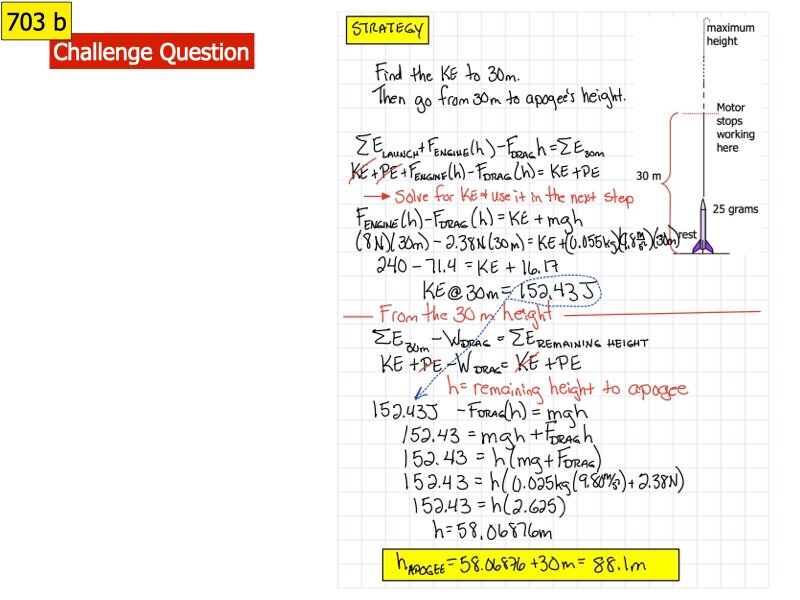 703 b
Challenge Question
STRATEGY
Find the KE to 30m.
Then go from 30m to apogee's height.
ΣE LAUNCH + F ENGINE (h) - F DRAG h = ΣE 30m
KE + PE + F ENGINE (h) - F DRAG (h) = KE + PE
→ Solve for KE & use it in the next step
F ENGINE (h) - F DRAG (h) = KE + mgh
(8N)(30m) - 2.38N(30m) = KE + (0.055kg)(9.8 m/s²)(30m)
240 - 71.4 = KE + 16.17
KE @ 30m = 152.43 J
From the 30 m height
ΣE 30m - W DRAG = ΣE REMAINING HEIGHT
KE + PE - W DRAG = KE + PE
h = remaining height to apogee
152.43J - F DRAG (h) = mgh
152.43 = mgh + F DRAG h
152.43 = h(mg + F DRAG)
152.43 = h(0.025kg(9.80 m/s²) + 2.38N)
152.43 = h(2.625)
h = 58.06876m
h APOGEE = 58.06876 + 30m = 88.1m
maximum
height
Motor
stops
working
here
30 m
25 grams
rest